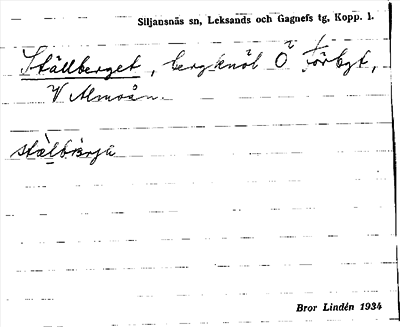 Siljansnäs sn, Leksands och Gagnefs tg, Kopp. l.
Ställberget, bergknöl Ö
V Almoån.
Bror Lindén 1934